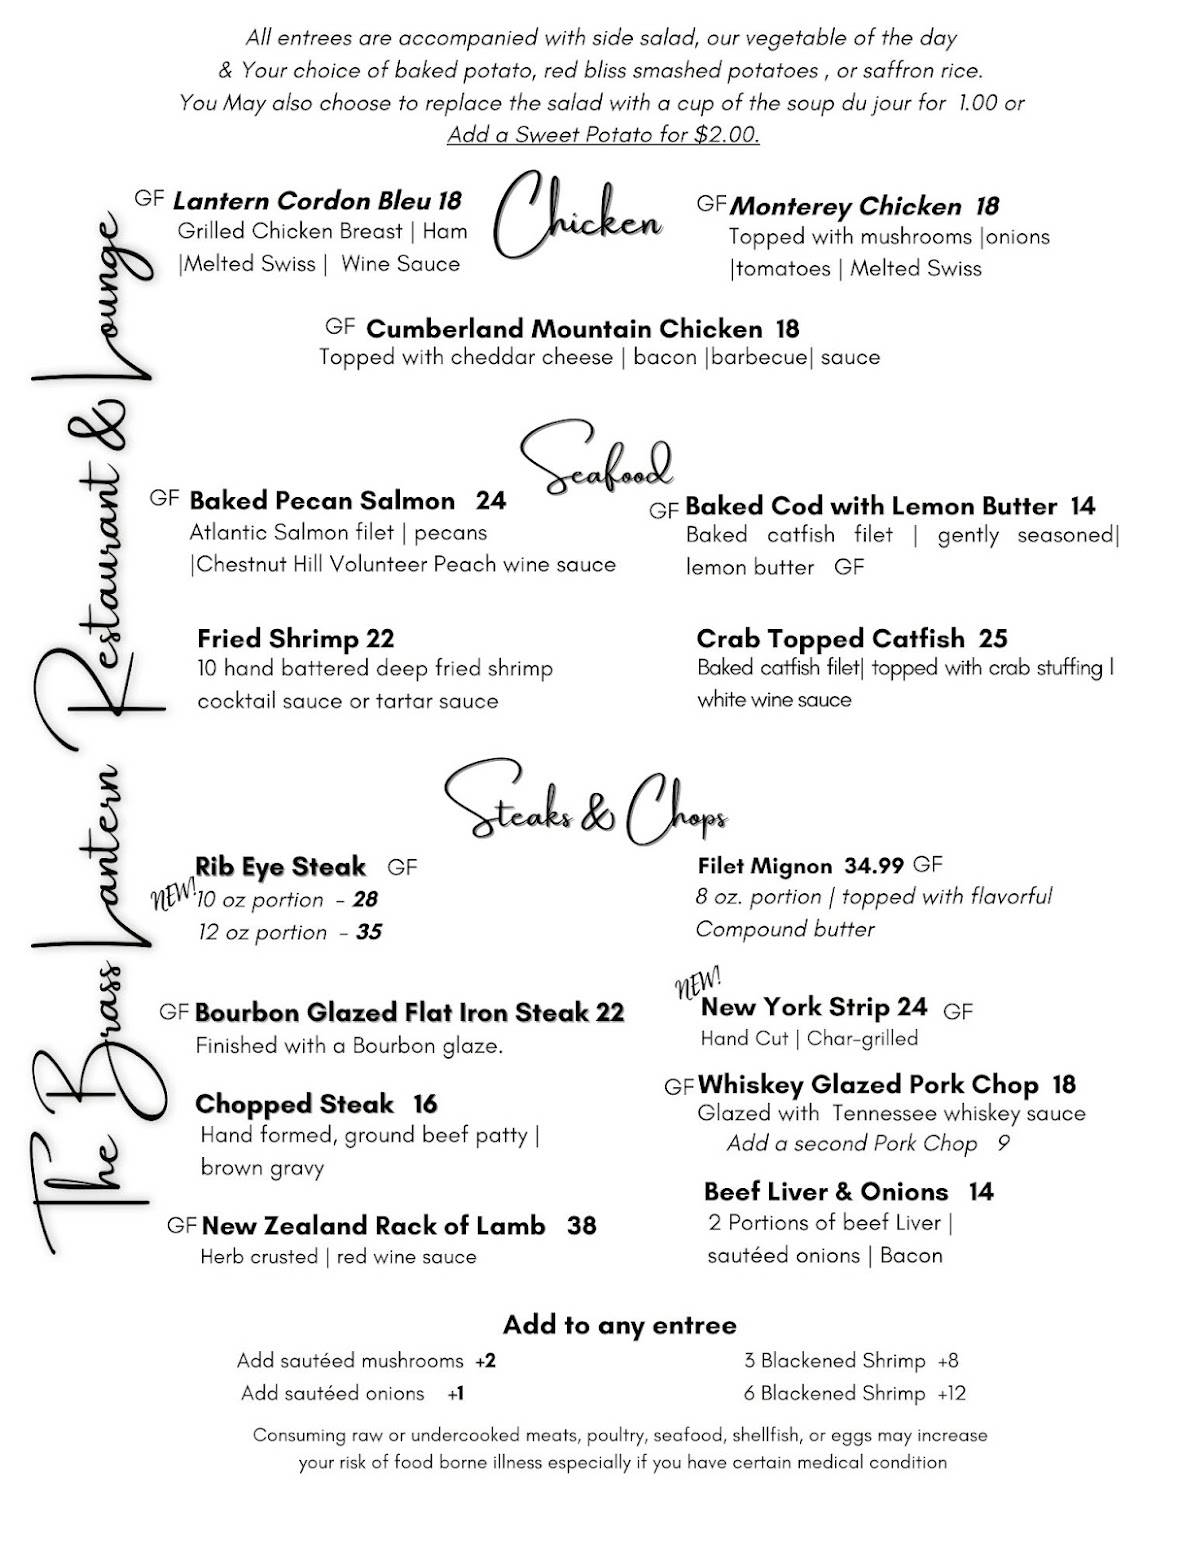 All entrees are accompanied with side salad, our vegetable of the day
& Your choice of baked potato, red bliss smashed potatoes , or saffron rice.
You May also choose to replace the salad with a cup of the soup du jour for 1.00 or
Add a Sweet Potato for $2.00.
The Brass Lantern Restaurant & Lounge
Chicken
GF Lantern Cordon Bleu 18
Grilled Chicken Breast | Ham
|Melted Swiss | Wine Sauce
GF Monterey Chicken 18
Topped with mushrooms |onions
|tomatoes | Melted Swiss
GF Cumberland Mountain Chicken 18
Topped with cheddar cheese | bacon |barbecue| sauce
Seafood
GF Baked Pecan Salmon 24
Atlantic Salmon filet | pecans
|Chestnut Hill Volunteer Peach wine sauce
GF Baked Cod with Lemon Butter 14
Baked catfish filet | gently seasoned|
lemon butter GF
Fried Shrimp 22
10 hand battered deep fried shrimp
cocktail sauce or tartar sauce
Crab Topped Catfish 25
Baked catfish filet| topped with crab stuffing |
white wine sauce
Steaks & Chops
Rib Eye Steak GF
NEW! 10 oz portion - 28
12 oz portion - 35
Filet Mignon 34.99 GF
8 oz. portion | topped with flavorful
Compound butter
GF Bourbon Glazed Flat Iron Steak 22
Finished with a Bourbon glaze.
NEW!
New York Strip 24 GF
Hand Cut | Char-grilled
Chopped Steak 16
Hand formed, ground beef patty |
brown gravy
GF Whiskey Glazed Pork Chop 18
Glazed with Tennessee whiskey sauce
Add a second Pork Chop 9
GF New Zealand Rack of Lamb 38
Herb crusted | red wine sauce
Beef Liver & Onions 14
2 Portions of beef Liver |
sautéed onions | Bacon
Add to any entree
Add sautéed mushrooms +2
Add sautéed onions +1
3 Blackened Shrimp +8
6 Blackened Shrimp +12
Consuming raw or undercooked meats, poultry, seafood, shellfish, or eggs may increase
your risk of food borne illness especially if you have certain medical condition